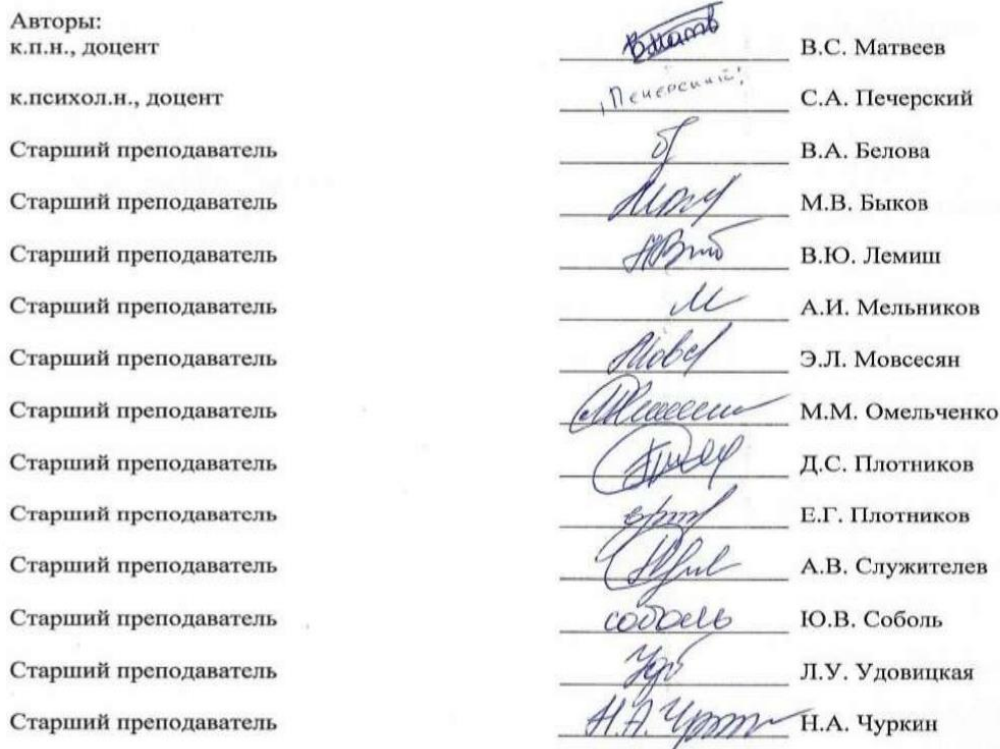 Авторы:
к.п.н., доцент В.С. Матвеев
к.психол.н., доцент Печерский С.А. Печерский
Старший преподаватель В.А. Белова
Старший преподаватель М.В. Быков
Старший преподаватель В.Ю. Лемиш
Старший преподаватель А.И. Мельников
Старший преподаватель Э.Л. Мовсесян
Старший преподаватель М.М. Омельченко
Старший преподаватель Д.С. Плотников
Старший преподаватель Е.Г. Плотников
Старший преподаватель А.В. Служителев
Старший преподаватель соболь Ю.В. Соболь
Старший преподаватель Л.У. Удовицкая
Старший преподаватель Н.А. Чуркин